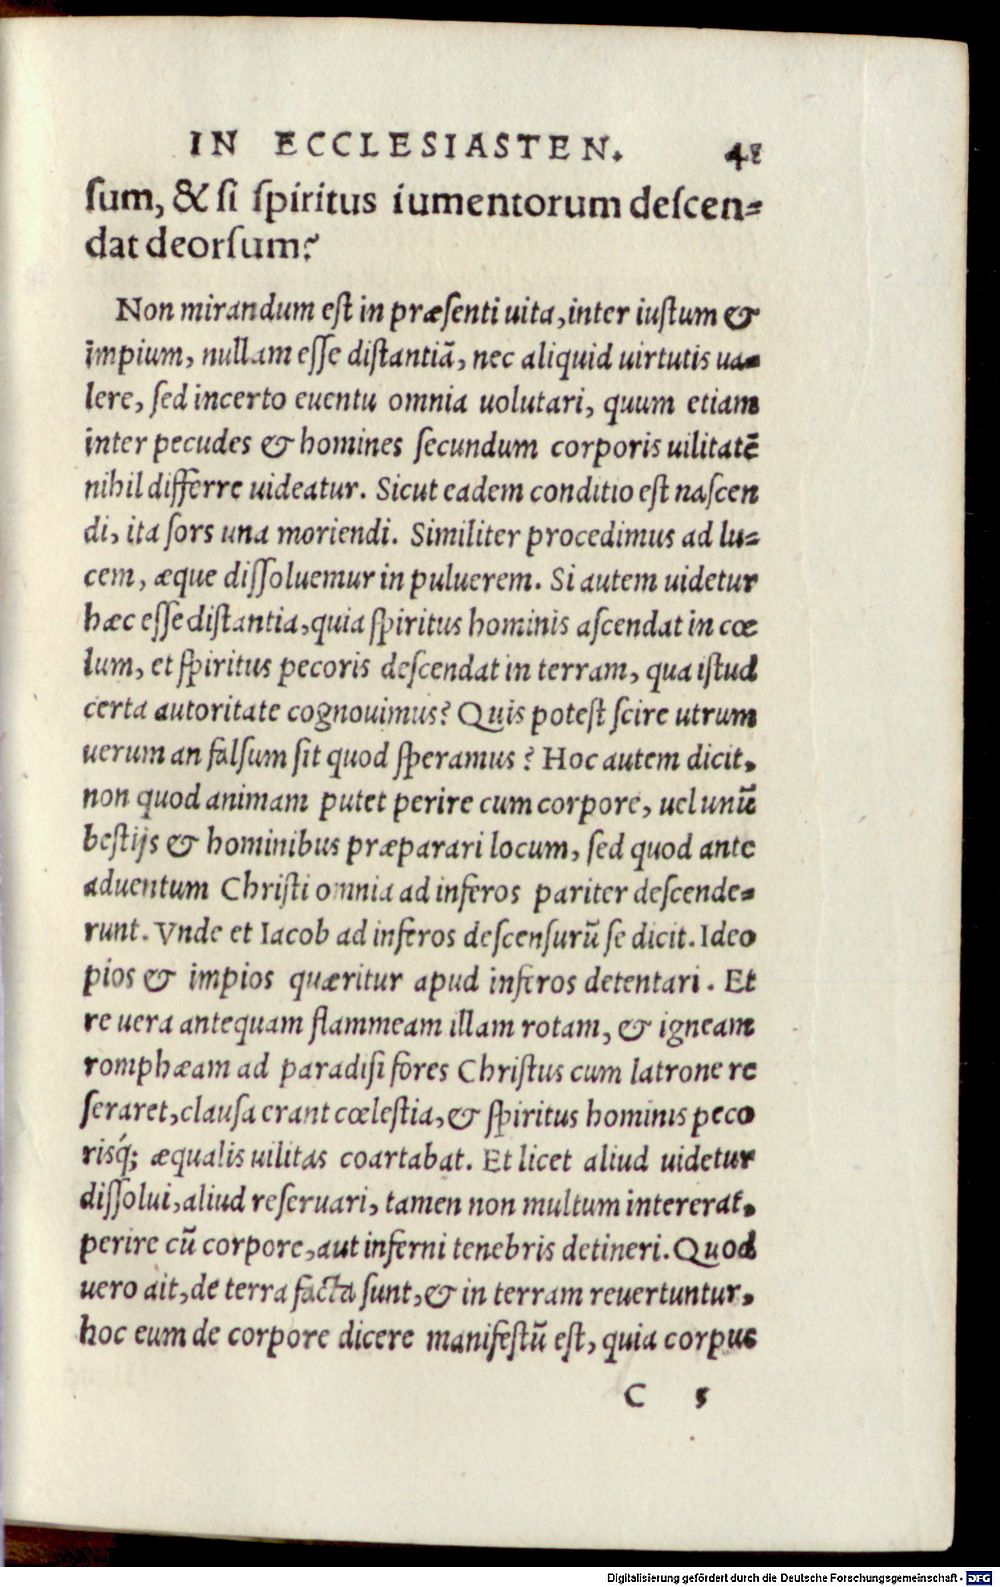 IN ECCLESIASTEN. 41
sum, & si spiritus iumentorum descen-
dat deorsum?
Non mirandum est in præsenti uita, inter iustum &
impium, nullam esse distantiã, nec aliquid uirtutis ua-
lere, sed incerto euentu omnia uolutari, quum etiam
inter pecudes & homines secundum corporis uilitatẽ
nihil differre uideatur. Sicut eadem conditio est nascen
di, ita sors una moriendi. Similiter procedimus ad lu-
cem, æque dissoluemur in puluerem. Si autem uidetur
hæc esse distantia, quia spiritus hominis ascendat in cœ
lum, et spiritus pecoris descendat in terram, qua istud
certa autoritate cognouimus? Quis potest scire utrum
uerum an falsum sit quod speramus? Hoc autem dicit,
non quod animam putet perire cum corpore, uel unũ
bestijs & hominibus præparari locum, sed quod ante
aduentum Christi omnia ad inferos pariter descende-
runt. Vnde et Iacob ad inferos descensurũ se dicit. Ideo
pios & impios quæritur apud inferos detentari. Et
re uera antequam flammeam illam rotam, & igneam
romphæam ad paradisi fores Christus cum latrone re
seraret, clausa erant cœlestia, & spiritus hominis peco
risq́; æqualis uilitas coartabat. Et licet aliud uidetur
dissolui, aliud reseruari, tamen non multum intererat,
perire cũ corpore, aut inferni tenebris detineri. Quod
uero ait, de terra facta sunt, & in terram reuertuntur,
hoc eum de corpore dicere manifestũ est, quia corpus
C 5
Digitalisierung gefördert durch die Deutsche Forschungsgemeinschaft - DFG